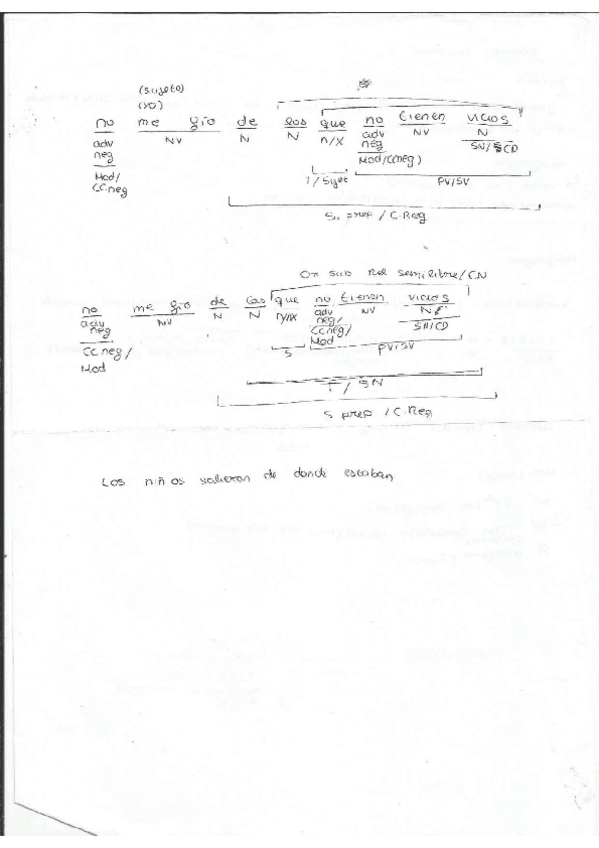 (sujeto)
(yo)
no me gio de los que no tienen vicios
adv neg NV N N n/x adv neg NV N
Mod/ CC.neg Mod/CCneg) SN/CD
T/Sujet PV/SV
S. prep / C.Reg
On sub Rel semilibre/CN
no me gio de los que no tienen vicios
adv neg NV N N n/nx adv neg/ NV N
CC neg/ Mod CCneg/ Mod SN/CD
S PV/SV
T / SN
S prep / C.Reg
Los niños salieron de donde estaban